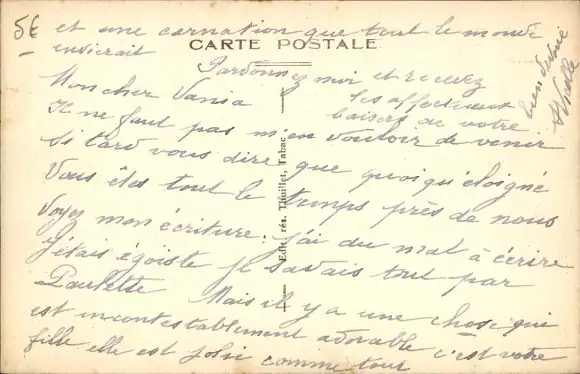 5€
et une carnation que tout le monde
envierait
CARTE POSTALE
Pardonnez moi et recevez
les affectueux
baisers de votre
bien
Mon cher Vania
Il ne faut pas m'en vouloir de venir
si tard vous dire que quoiqu'éloigné
Vous êtes tout le temps près de nous
Voyez mon écriture: j'ai du mal à écrire
J'étais égoïste je savais tout par
Paulette Mais il y a une chose qui
est incontestablement adorable c'est votre
fille elle est jolie comme tout
Edit. rés. Thuillet, Tabac